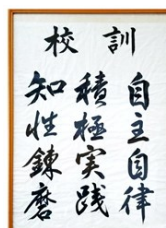 校訓
自主自律
積極実践
知性錬磨